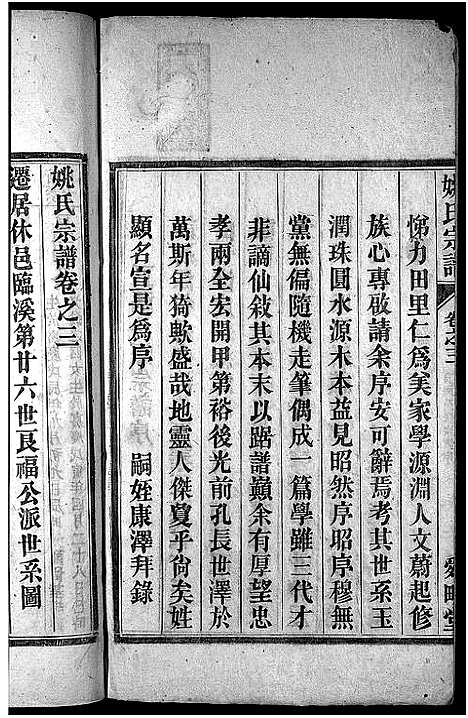 姚氏宗譜
卷之三
悌力田里仁爲美家學源淵人文蔚起修
族心專啟請余序安可辭焉考其世系玉
潤珠圓水源木本益見昭然序昭序穆無
黨無偏隨機走筆偶成一篇學雖三代才
非謫仙敍其本末以踞譜巔余有厚望忠
孝兩全宏開甲第裕後光前孔長世澤於
萬斯年猗歟盛哉地靈人傑敻乎尙矣姓
顯名宣是爲序
嗣姪康澤拜錄
姚氏宗譜卷之三
遷居休邑臨溪第廿六世艮福公派世系圖